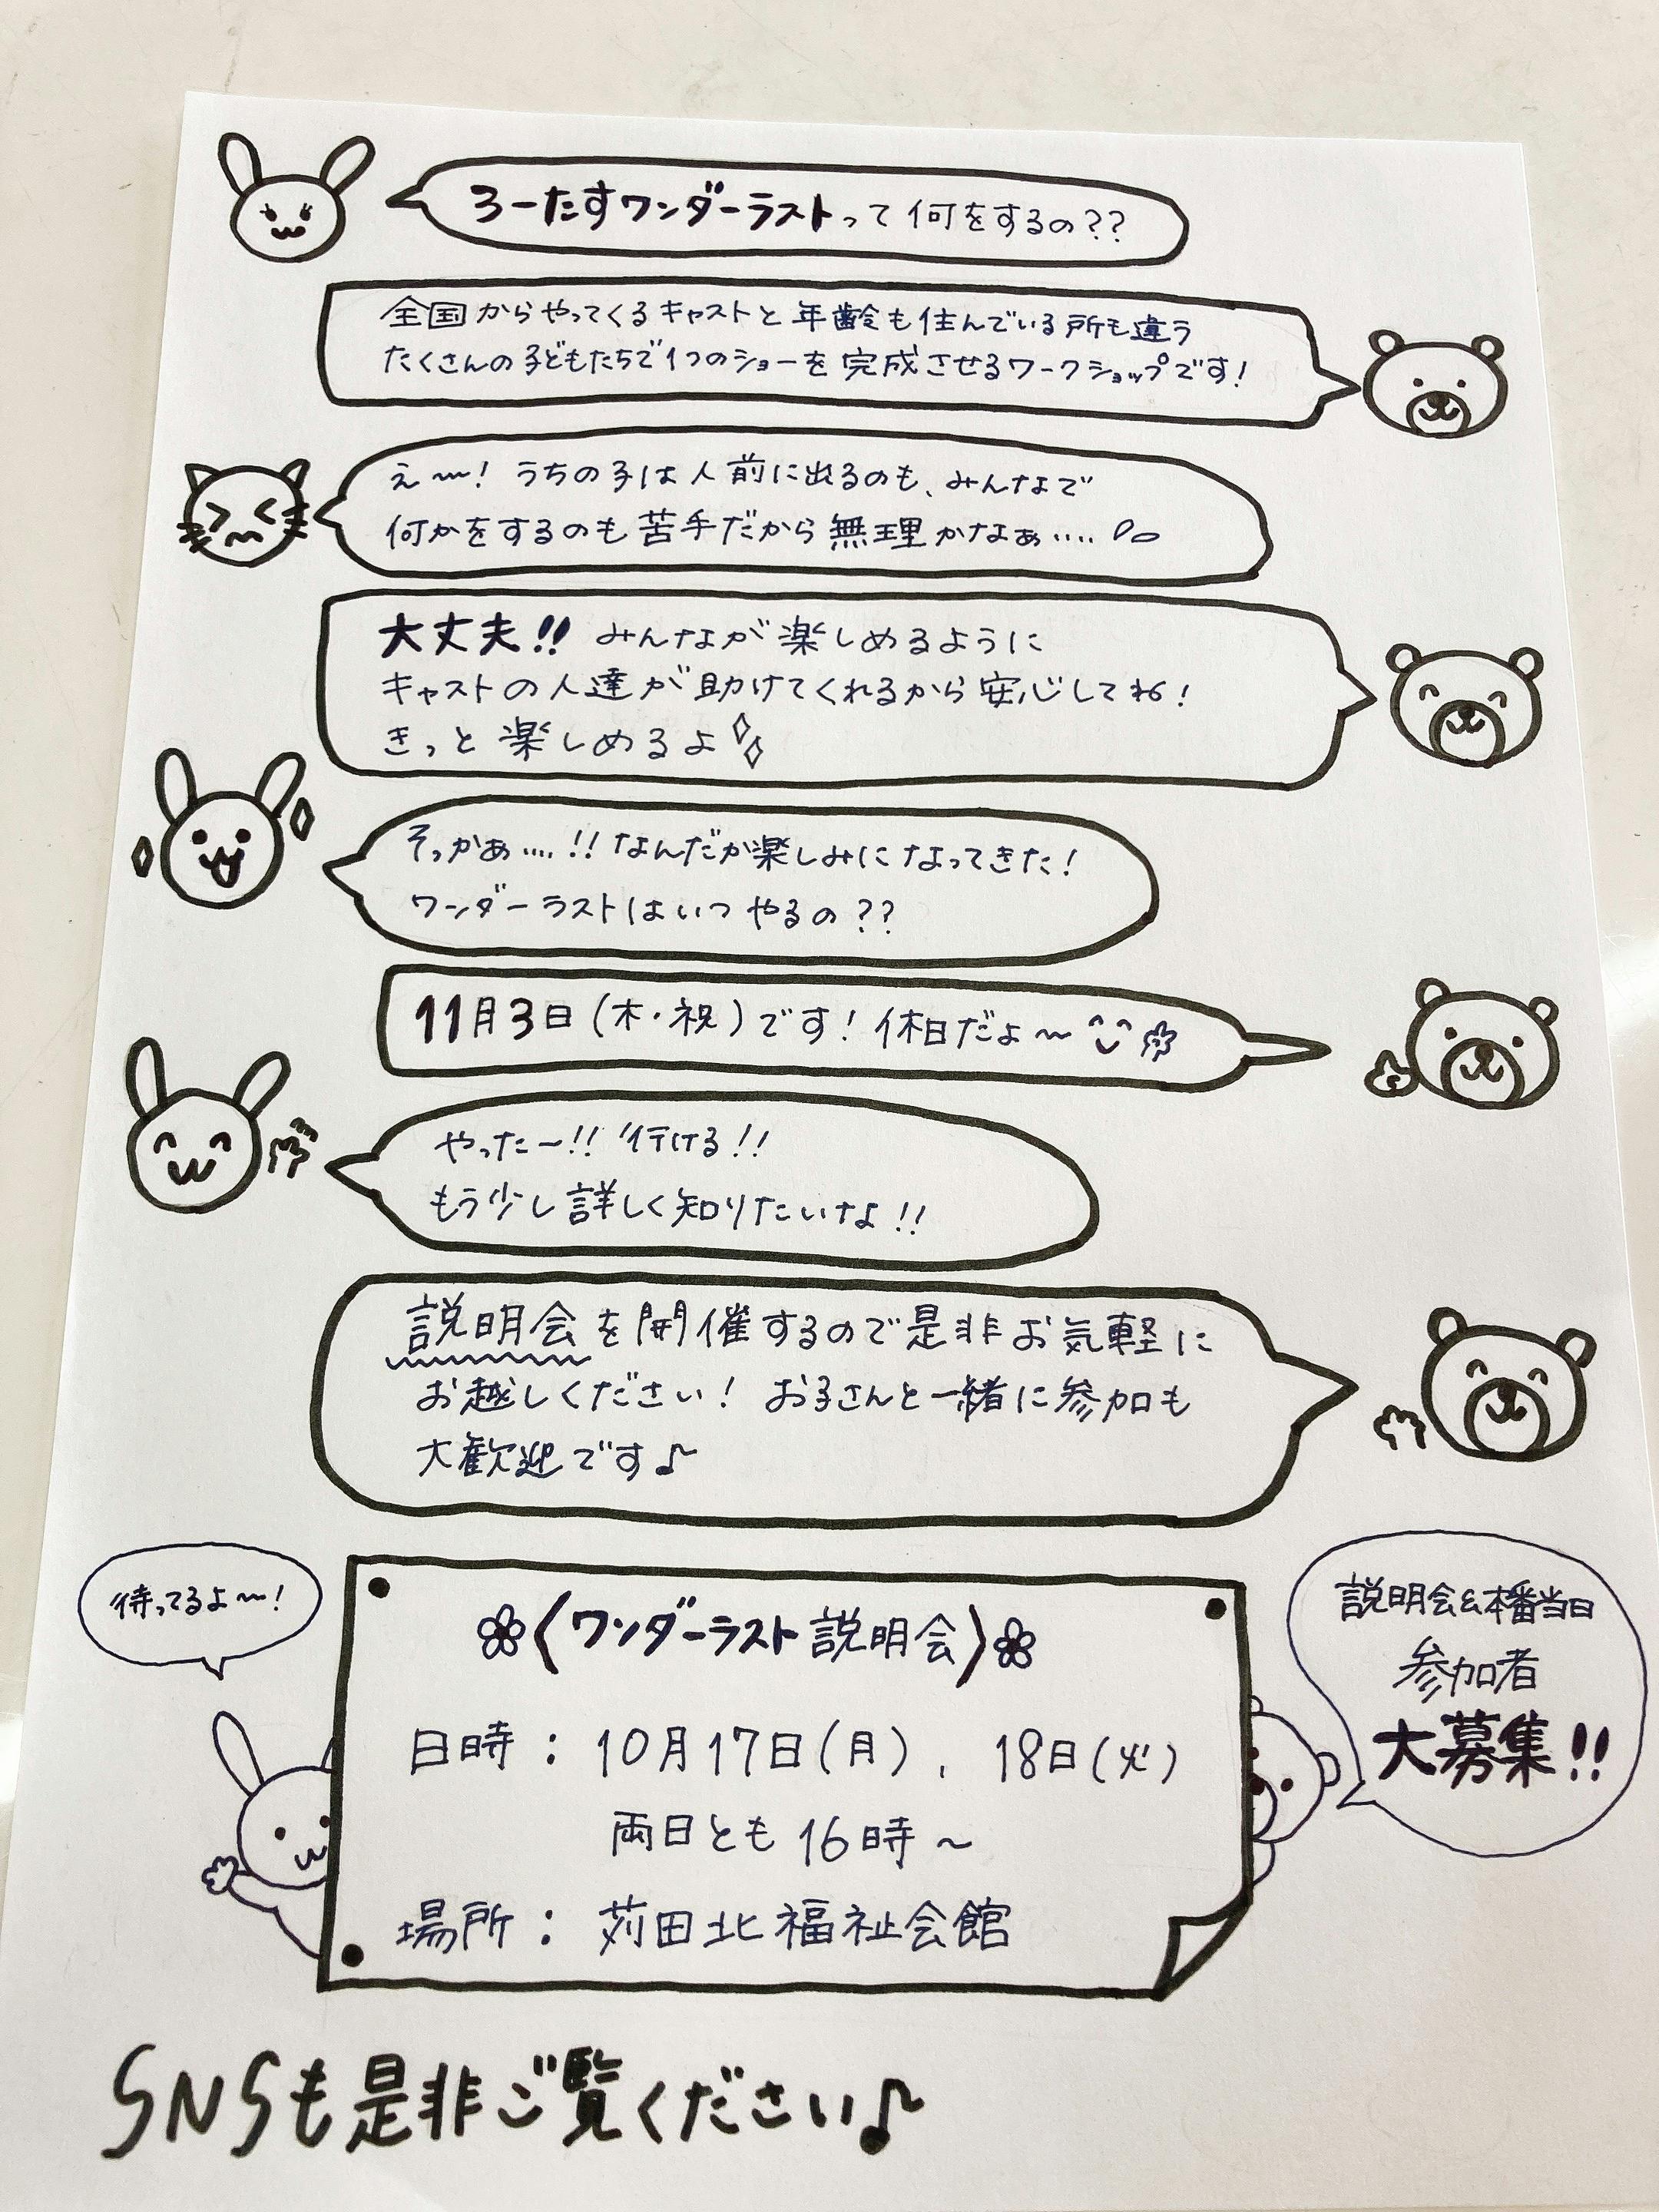 ろーたすワンダーラストって何をするの??
全国からやってくるキャストと年齢も住んでいる所も違う
たくさんの子どもたちで1つのショーを完成させるワークショップです!
え〜!うちの子は人前に出るのも、みんなで
何かをするのも苦手だから無理かなぁ....
大丈夫!!みんなが楽しめるように
キャストの人達が助けてくれるから安心してね!
きっと楽しめるよ
そっかぁ....!!なんだか楽しみになってきた!
ワンダーラストはいつやるの??
11月3日(木・祝)です!休日だよ〜
やったー!!行ける!!
もう少し詳しく知りたいな!!
説明会を開催するので是非お気軽に
お越しください!お子さんと一緒に参加も
大歓迎です♪
待ってるよ〜!
説明会&本番当日
参加者
大募集!!
〈ワンダーラスト説明会〉
日時:10月17日(月)、18日(火)
両日とも16時〜
場所:苅田北福祉会館
SNSも是非ご覧ください♪